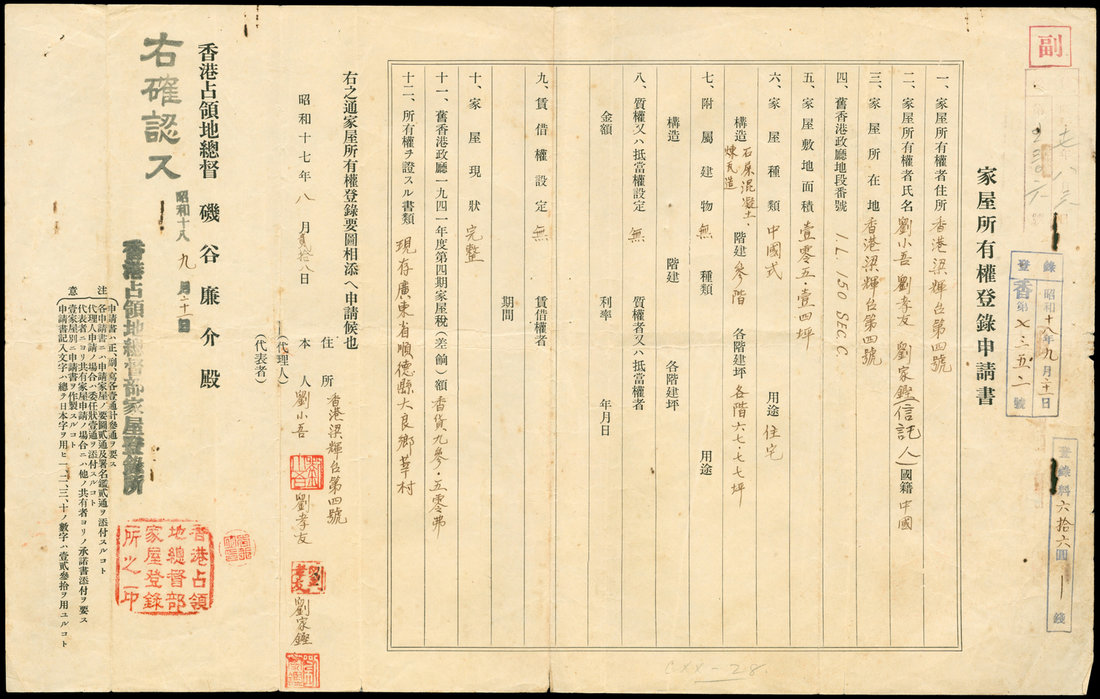 副
登錄
昭和十八年九月二十一日
香第七三五二號
登錄料六拾六圓 錢
家屋所有權登錄申請書
一、家屋所有權者住所 香港梁輝台第四號
二、家屋所有權者氏名 劉小吾 劉孝友 劉家鏗(信託人) 國籍 中國
三、家屋所在地 香港梁輝台第四號
四、舊香港政廳地段番號 I.L. 150 SEC. C
五、家屋敷地面積 壹零五·壹四坪
六、家屋種類 中國式 用途 住宅
構造 石屎混凝土、煉瓦造 階建 參階 各階建坪 各階六七·七七坪
七、附屬建物 無 種類 用途
構造 階建 各階建坪
八、質權又ハ抵當權設定 無 質權者又ハ抵當權者
金額 利率 年月日
九、賃借權設定 無 賃借權者
期間
十、家屋現狀 完整
十一、舊香港政廳一九四一年度第四期家屋稅(差餉)額 香貨九參·五零弗
十二、所有權ヲ證スル書類 現存廣東省順德縣大良鄉華村
右之通家屋所有權登錄要圖相添ヘ申請候也
昭和十七年八月貳拾八日
住所 香港梁輝台第四號
本人 劉小吾 劉孝友 劉家鏗
(代理人)
(代表者)
香港占領地總督 磯谷廉介殿
右確認ス
昭和十八 九月二十一日
香港占領地總督部家屋登錄所
香港占領地總督部家屋登錄所之印
注意
申請書ハ正、副、寫各壹通計參通ヲ要ス
各申請書ニハ申請家屋ノ要圖貳通及署名鑑貳通ヲ添付スルコト
代理人申請ノ場合ハ委任狀壹通ヲ添付スルコト
代表者ニヨリ共有家屋申請ノ場合ニハ他ノ共有者ヨリノ承諾書添付ヲ要ス
壹家屋別ニ申請書ヲ作製スルコト
申請書記入文字ハ總テ日本字ヲ用ヒ一、二、三、十ノ數字ハ壹貳參拾ヲ用ユルコト
CXX-28.